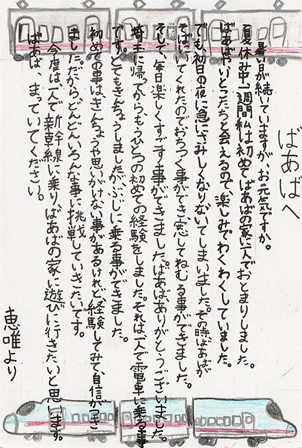 ばあばへ
暑い日が続いていますが、お元気ですか。
夏休み中一週間私は初めてばあばの家に一人でおとまりしました。
ばあばやいとこたちと会えるので、楽しみでわくわくしていました。
でも、初日の夜に急にさみしくなりないてしまいました。その時ばあばが
そばにいてくれたのでおちつく事ができ、安心してねむる事ができました。
そして、毎日楽しくすごす事ができました。ばあばありがとうございました。
埼玉に帰ってからもう一つの初めての経験をしました。それは一人で電車に乗る事
です。とてもきんちょうしましたがぶじに乗る事ができました。
初めての事は、きんちょうや思いがけない事があるけれど、経験してみて、自信がつき
ました。だからどんどんいろんな事に挑戦していきたいです。
今度は一人で新幹線に乗り、ばあばの家に遊びに行きたいと思います。
ばあば、まっていてください。
恵唯より